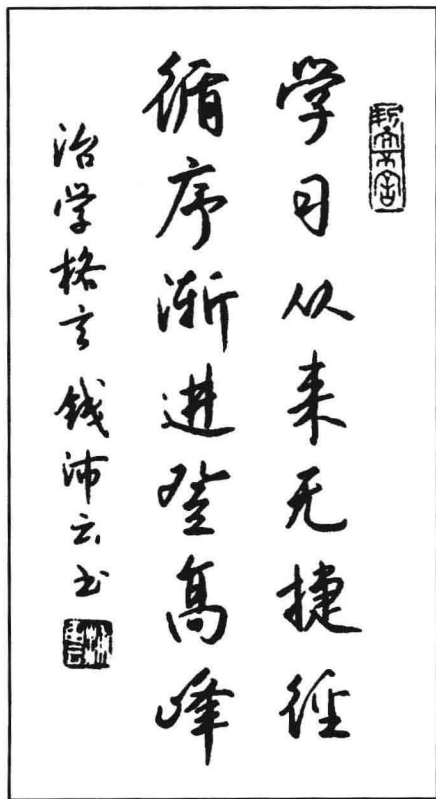 学习从来无捷径
循序渐进登高峰
治学格言 钱沛云书